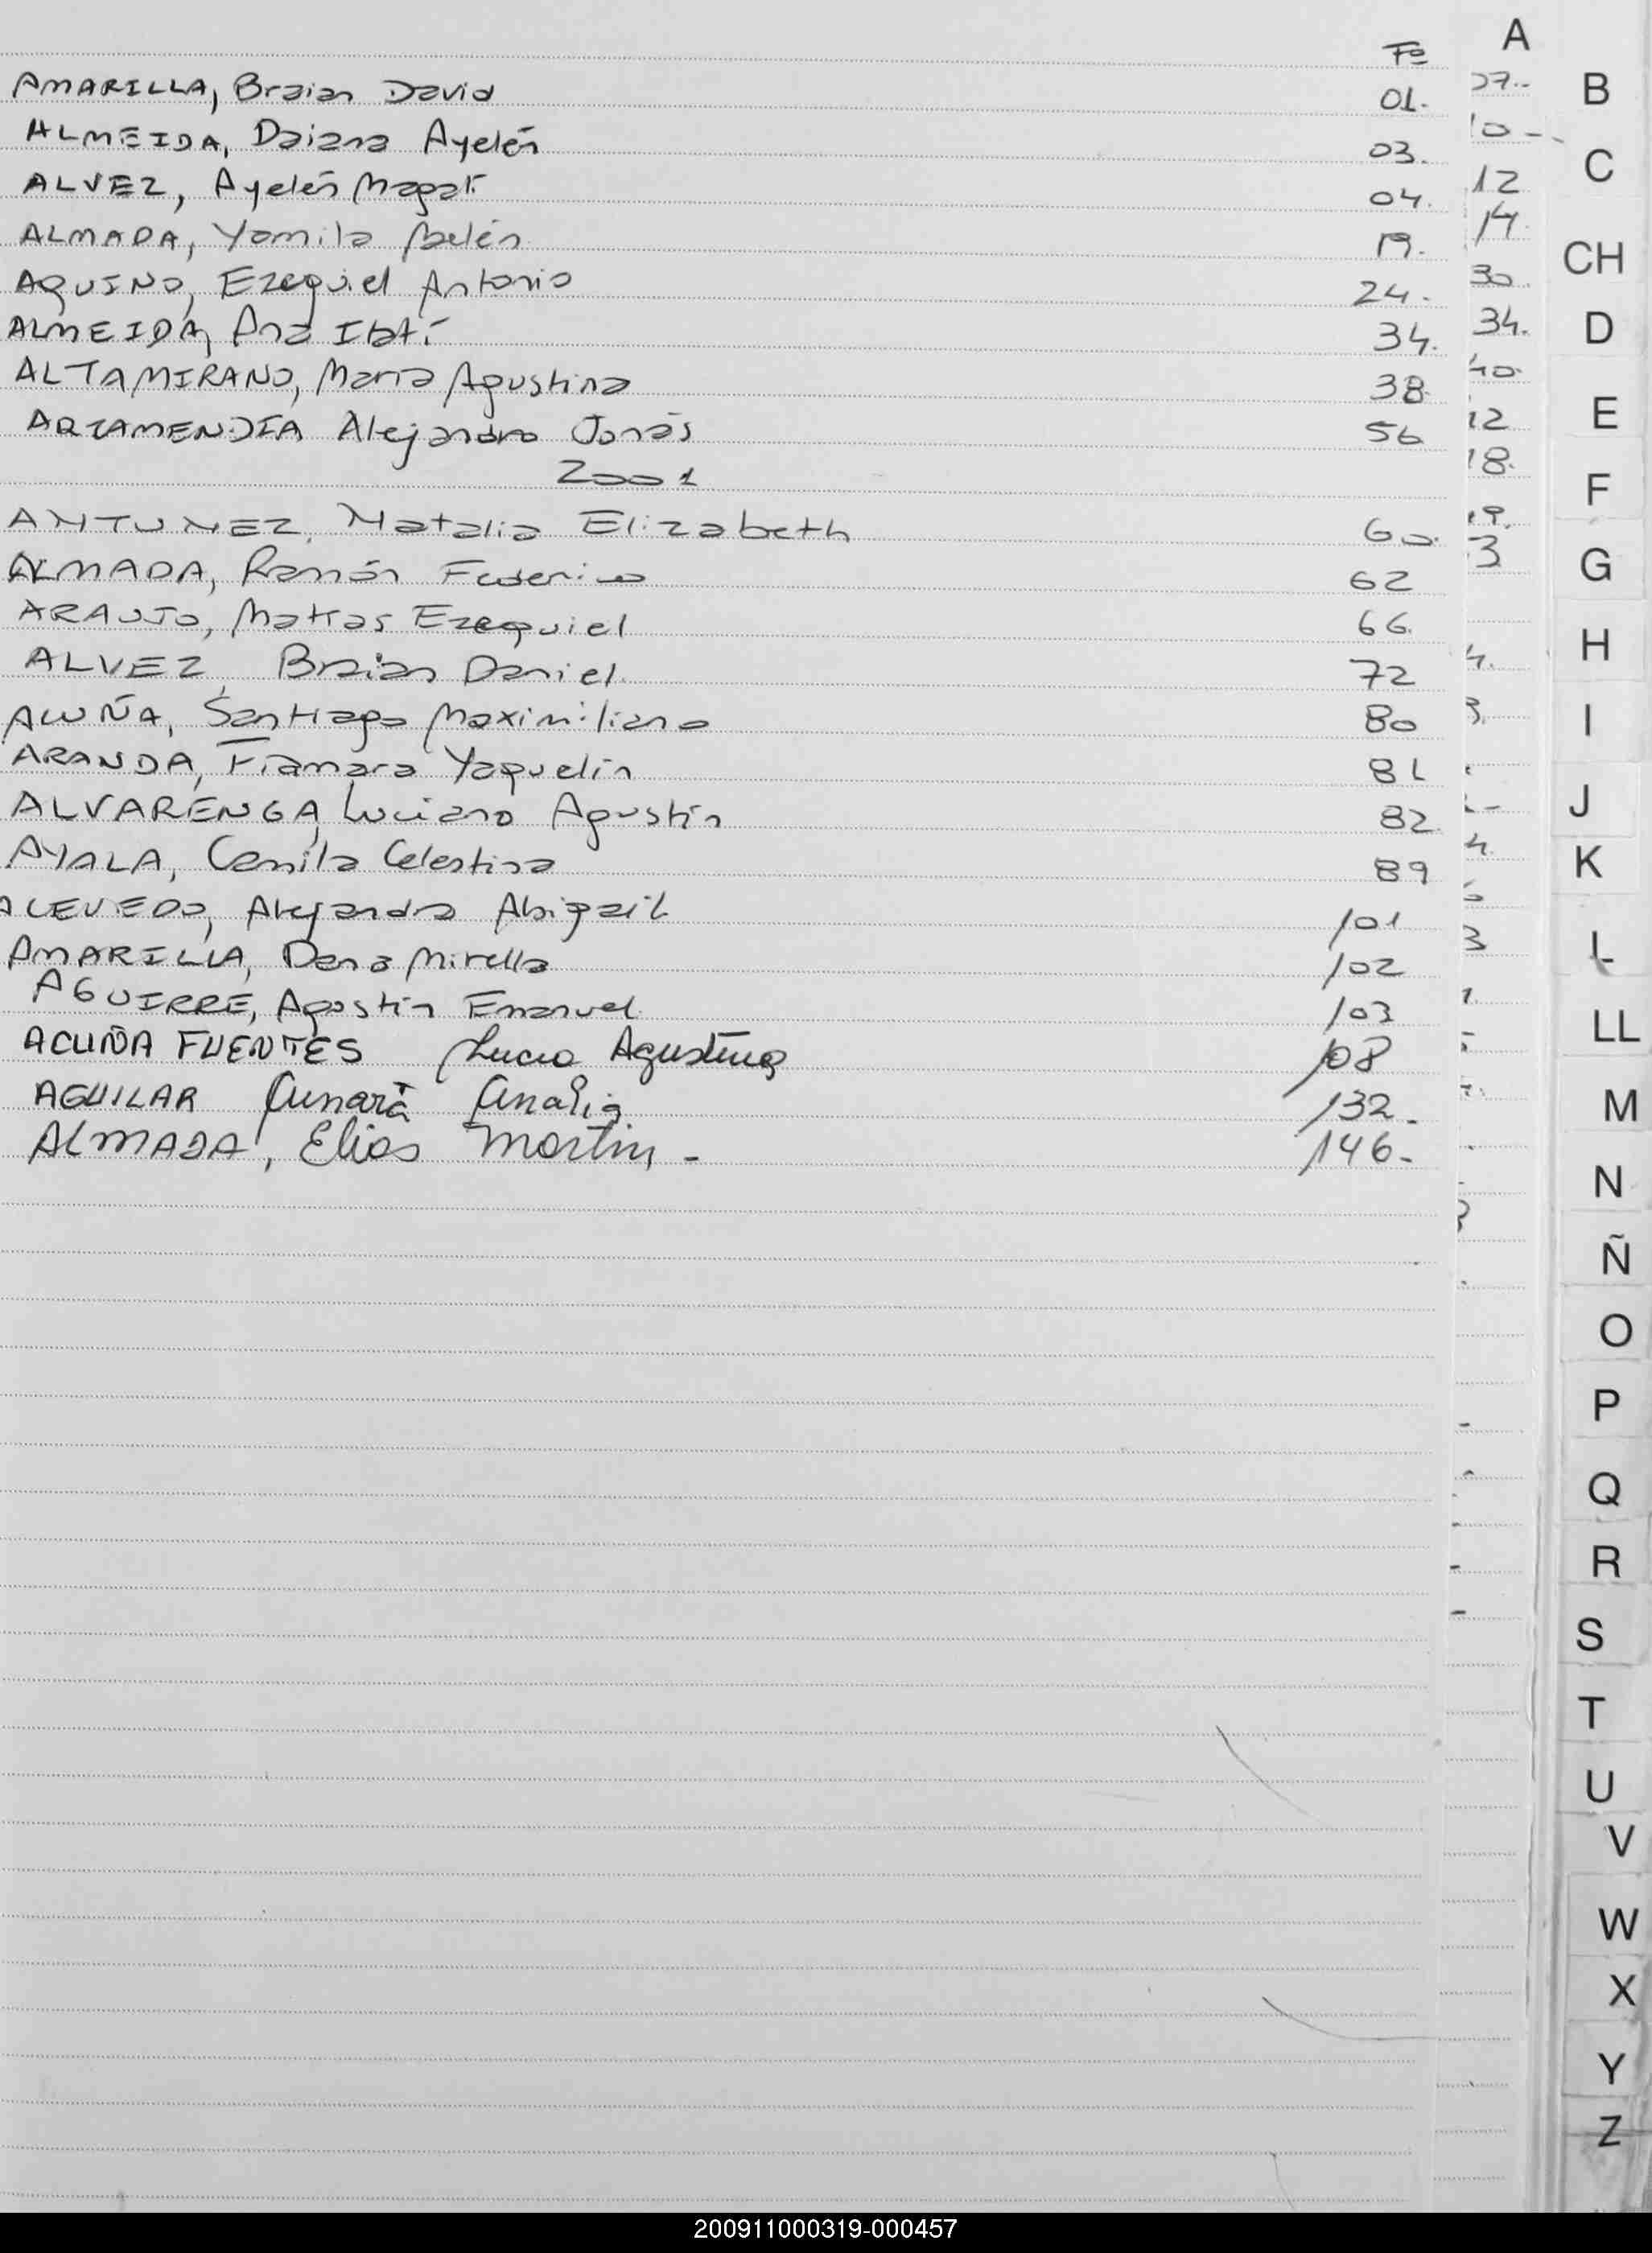 A
Fº
AMARILLA, Braian David 01.
ALMEIDA, Daiana Ayelén 03.
ALVEZ, Ayelén Magalí 04.
ALMADA, Yamila Belén 19.
AQUINO, Ezequiel Antonio 24.
ALMEIDA, Ana Itatí 34.
ALTAMIRANO, María Agustina 38.
ARIAMENDIA Alejandro Jonás 56
2001
ANTUNEZ, Natalia Elizabeth 60.
ALMADA, Ramón Federico 62
ARAUJO, Matías Ezequiel 66.
ALVEZ, Braian Daniel. 72
ACUÑA, Santiago Maximiliano 80
ARANDA, Fiamara Yaquelín 81
ALVARENGA, Luciano Agustín 82.
AYALA, Camila Celestina 89
ACEVEDO, Alejandra Abigail 101
AMARILLA, Dana Mirella 102
AGUIRRE, Agustín Emanuel. 103
ACUÑA FUENTES Lucia Agustina 108
AGUILAR Ainara Analia 132.
ALMADA, Elias Martin. - 146.-
27.-
10-
12
14.
30.
34.
40.
12
18.
19.
3
B
C
CH
D
E
F
G
H
I
J
K
L
LL
M
N
Ñ
O
P
Q
R
S
T
U
V
W
X
Y
Z
200911000319-000457